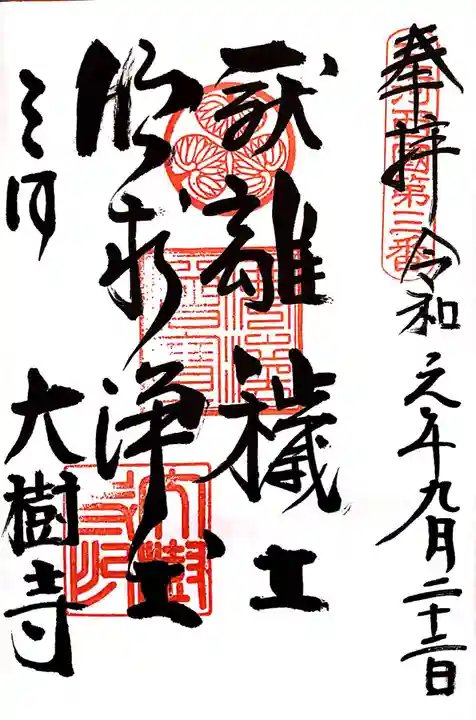 奉拝 令和元年九月二十二日
三河西國第三番
厭離穢土
欣求浄土
三河 大樹寺